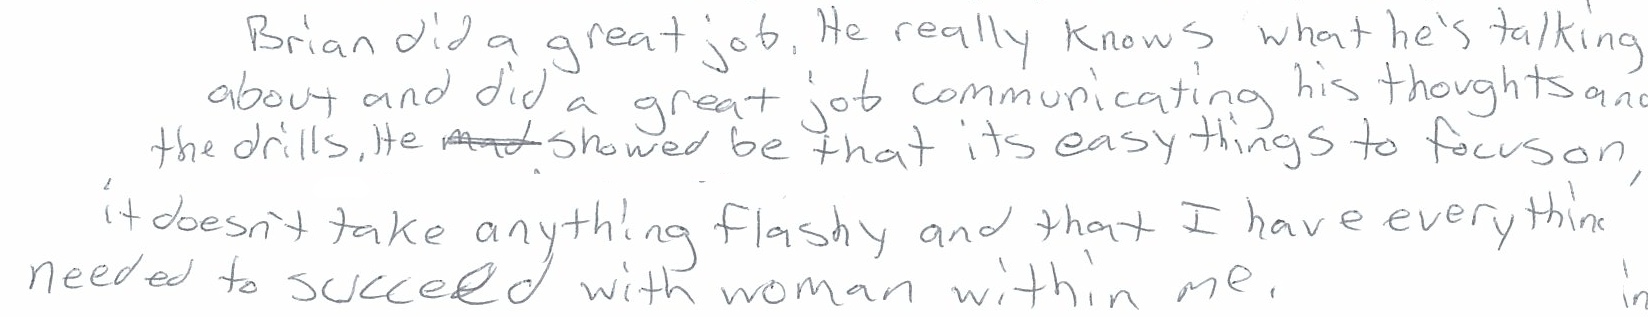 Brian did a great job. He really knows what he's talking
about and did a great job communicating his thoughts and
the drills. He showed be that its easy things to focus on,
it doesn't take anything flashy and that I have everything
needed to succeed with woman within me.
in